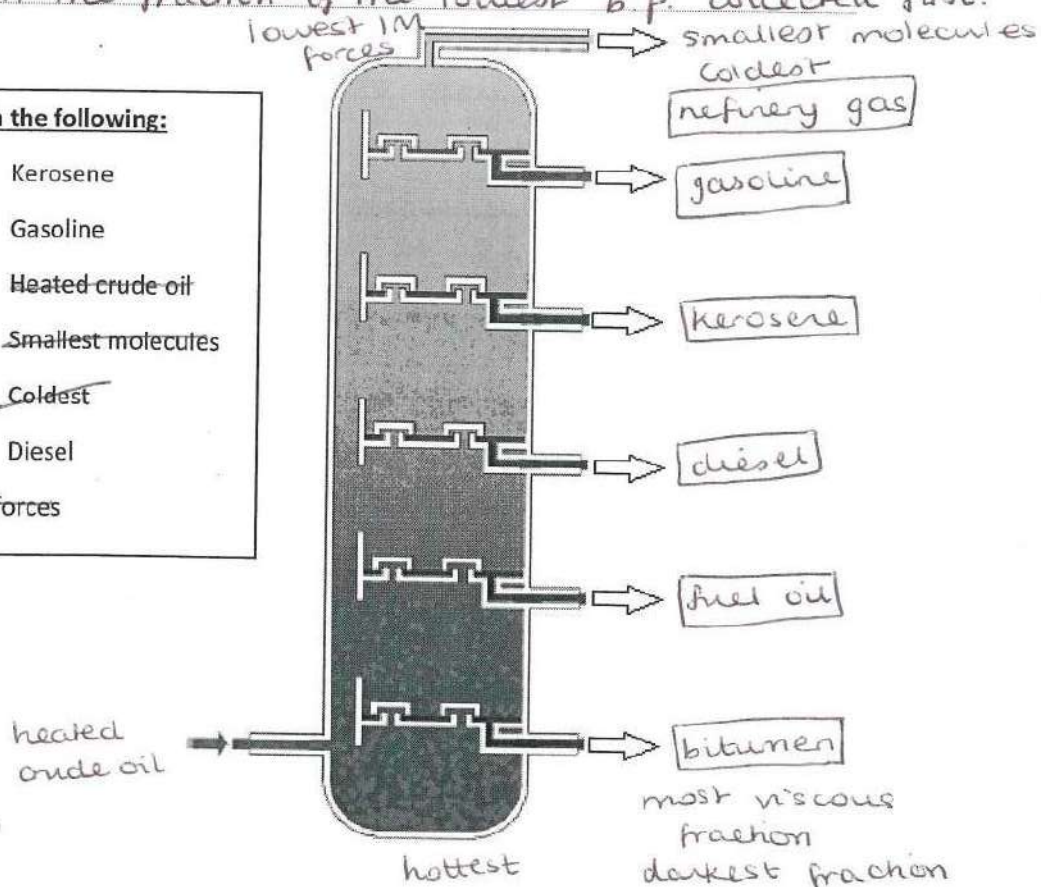 the fraction of the lowest b.p. collected first.
lowest IM
forces
smallest molecules
coldest
refinery gas
the following:
Kerosene
Gasoline
Heated crude oil
Smallest molecules
Coldest
Diesel
forces
gasoline
kerosene
diesel
fuel oil
heated
crude oil
bitumen
most viscous
fraction
darkest fraction
hottest